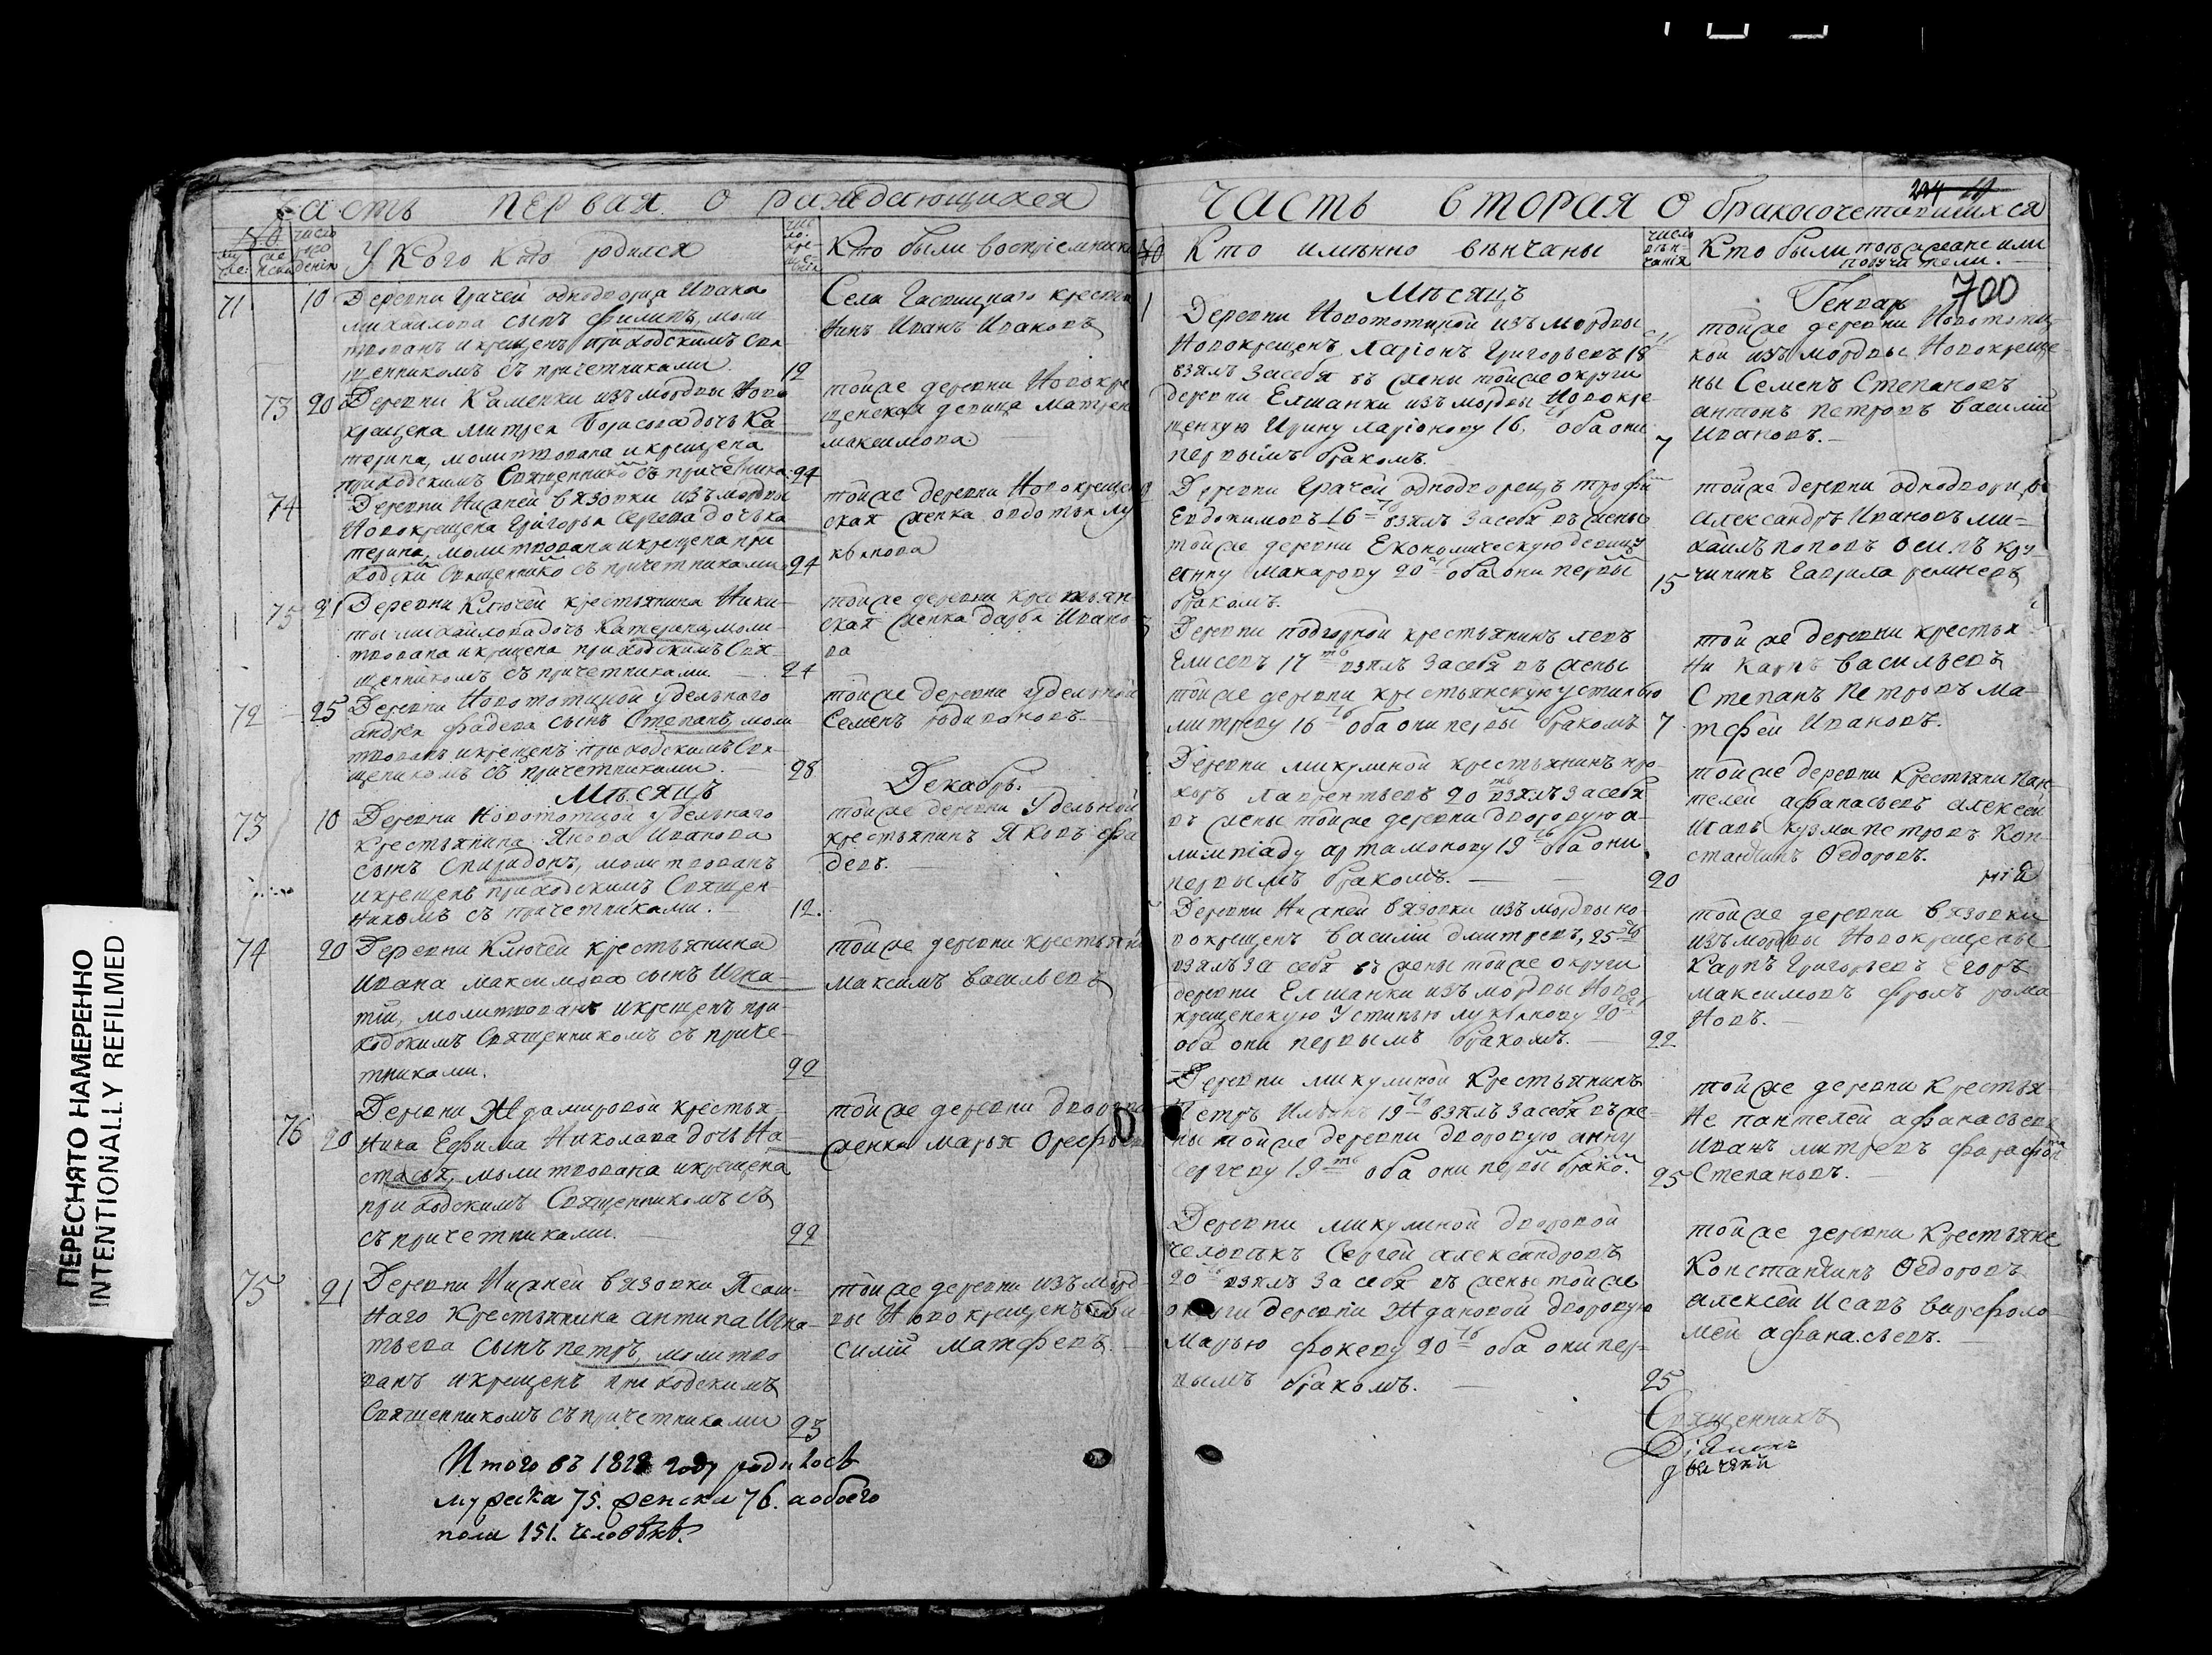 ПЕРЕСНЯТО НАМЕРЕННО
INTENTIONALLY REFILMED
Часть первая о раждающихся
У кого кто родился
Кто были воспріемники
71 10 Деревни Грачей однодворца Ивана
Михайлова сынъ Филипъ, моли
твованъ и крещенъ приходскимъ Свя
щенникомъ съ причетниками. 12
Села Гасвицкаго крестья
нинъ Иванъ Ивановъ
73 20 Деревни Каменки изъ мордвы Ново
крещена Митрея Борисова дочь Ка-
терина, молитвована и крещена
приходскимъ Священнико съ причетника 24
тойже деревни Новокре
щенская девица Матрена
Максимова
74 Деревни Нижней Вязовки изъ мордвы
Новокрещена Григорья Сергева дочь Ка
терина, молитвована и крещена при
ходски Священнико съ причетниками 24
тойже деревни Новокрещен
ская женка Овдотья Лу
кьянова
75 21 Деревни Ключей крестьянина Ники-
ты Михайлова дочь Катерина, моли-
твована и крещена приходскимъ Свя-
щенникомъ съ причетниками. 24
тойже деревни крестьян-
ская женка Дарья Ивано
ва
72 25 Деревни Новотоцкой удельнаго
Андрея Фадева сынъ Степанъ, моли
твованъ и крещенъ приходскимъ Свя-
щеникомъ съ причетниками. 28
тойже деревни удельной
Семенъ Родивоновъ.
Мѣсяцъ Декабрь.
73 10 Деревни Новотоцкой удельнаго
крестьянина Якова Иванова
сынъ Спиридонъ, молитвованъ
и крещенъ приходскимъ Священ-
никомъ съ причетниками. 12.
тойже деревни удельной
крестьянинъ Яковъ Фа
девъ.
74 20 Деревни Ключей крестьянина
Ивана Максимова сынъ Игна-
тій, молитвованъ и крещенъ при-
ходскимъ Священникомъ съ приче-
тниками. 22
тойже деревни крестьянин
Максимъ Васильевъ
76 20 Деревни Ждамировой крестья-
нина Ефима Николава дочь На-
стасья, молитвована и крещена
приходскимъ Священникомъ съ
съ причетниками. 22
тойже деревни дворова
женка Марья ОреФьева
75 21 Деревни Нижней Вязовки Ясаш-
наго крестьянина Антипа Игна-
тьева сынъ Петръ, молитво
ванъ и крещенъ приходскимъ
Священникомъ съ причетниками 23
тойже деревни изъ морд-
вы Новокрещенъ Ва-
силій Матфевъ.
Итого въ 1828 году родилось
мужеска 75. женска 76. а обоего
пола 151. человѣкъ.
Часть вторая о бракосочетавшихся
Кто имѣнно вѣнчаны
число вѣн-
чанія
Кто были поѣзжане или
поручатели.
700
Мѣсяцъ Генварь
1 Деревни Новотоцкой изъ мордвы
Новокрещенъ Ларіонъ Григорьевъ 18
взялъ за себя въ жены тойже округи
деревни Елшанки изъ мордвы Новокре-
щенкую Ирину Ларіонову 16. оба они
первымъ бракомъ. 7
тойже деревни Новотоц-
кой изъ мордвы Новокреще-
ны Семенъ Степановъ
Антонъ Петровъ Василій
Ивановъ.
2 Деревни Грачей однодворецъ Трофи
Евдокимовъ 16 взялъ за себя въ жены
тойже деревни Економическую девицу
Анну Макарову 20 оба они первы
бракомъ. 15
тойже деревни однодворцы
Александръ Ивановъ Ми-
хайлъ Поповъ Осипъ Кру-
чининъ Гаврила
3 Деревни Подгорной крестьянинъ Левъ
Елисевъ 17 взялъ за себя въ жены
тойже деревни крестьянскую Устинью
Митреву 16 оба они первы бракомъ 7
тойже деревни крестья-
ни Карпъ Васильевъ
Степанъ Петровъ Ма-
тфей Ивановъ.
Деревни Микулиной крестьянинъ Про-
хоръ Лаврентьевъ 20 взялъ за себя
въ жены тойже деревни дворовую А-
лимпіаду Артамонову 19 оба они
первымъ бракомъ. 20
тойже деревни крестьяни Пан-
телей Афанасьевъ Алексей
Исавъ Кузма Петровъ Кон-
стантинъ Федоровъ.
Деревни Нижней Вязовки изъ мордвы но-
вокрещенъ Василій Дмитревъ, 25
взялъ за себя въ жены тойже округи
деревни Елшанки изъ мордвы Ново
крещенскую Устинью Лукьянову 20
оба они первымъ бракомъ. 22
тойже деревни Вязовки
изъ мордвы Новокрещены
Карпъ Григорьевъ Егоръ
Максимовъ Фролъ Рома-
новъ.
Деревни Микулиной крестьянинъ
Петръ Ильинъ 19 взялъ за себя въ же-
ны тойже деревни дворовую Анну
Сергеву 19 оба они первы брако. 25
тойже деревни крестья-
не Пантелей Афанасьевъ
Иванъ Митревъ
Степановъ.
Деревни Микулиной дворовой
человѣкъ Сергей Александровъ
20 взялъ за себя въ жены тойже
округи деревни Ждановой дворовую
Марью Фокеву 20 оба они пер-
вымъ бракомъ. 25
тойже деревни крестьяне
Константинъ Федоровъ
Алексей Исавъ Варфоло
мей Афанасьевъ.
Священникъ